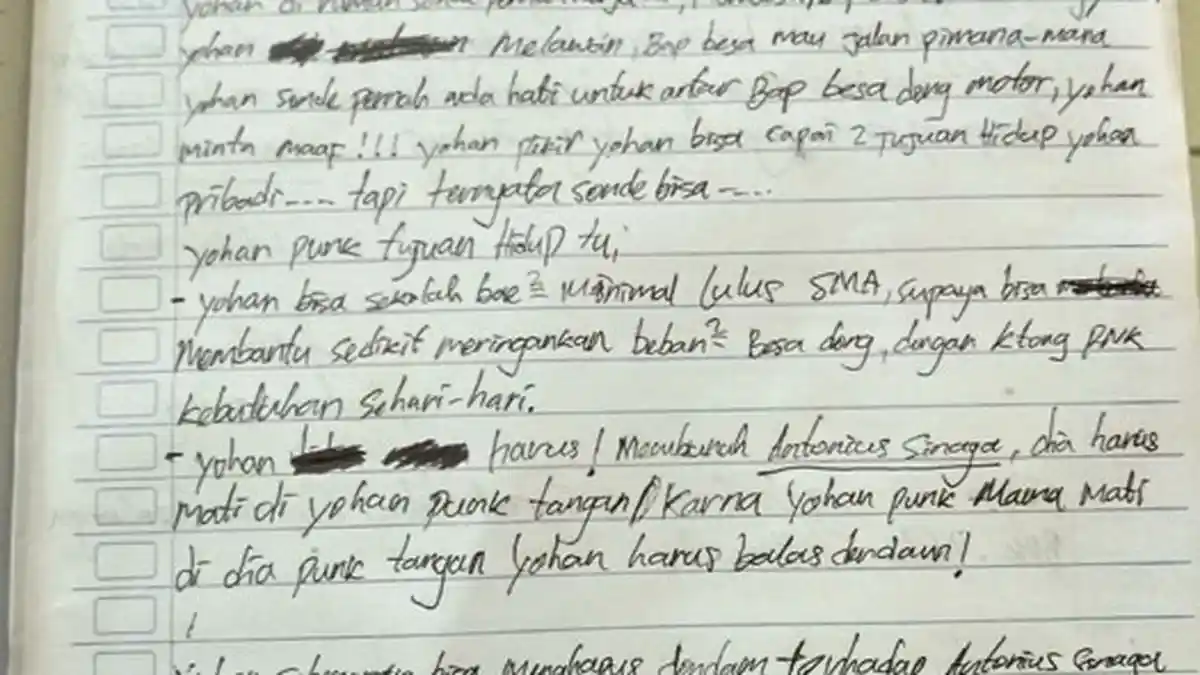 yohan di
yohan Melawan, Bap besa mau jalan pimana-mana
yohan sonde pernah ada hati untuk antar Bap besa deng motor, yohan
minta maaf!!! yohan pikir yohan bisa capai 2 Tujuan Hidup yohan
pribadi---- tapi ternyata sonde bisa-----
yohan punk tujuan Hidup tu,
- yohan bisa sekolah bae² Minimal lulus SMA, supaya bisa
Membantu sedikit meringankan beban² Besa deng, dengan ktong PNK
kebutuhan sehari-hari.
- yohan harus! Membunuh Antonius Sinaga, dia harus
mati di yohan punk tangan!! Karna yohan punk Mama Mati
di dia punk tangan yohan harus balas dendam!
bisa menghapus dendam terhadap Antonius Sinaga